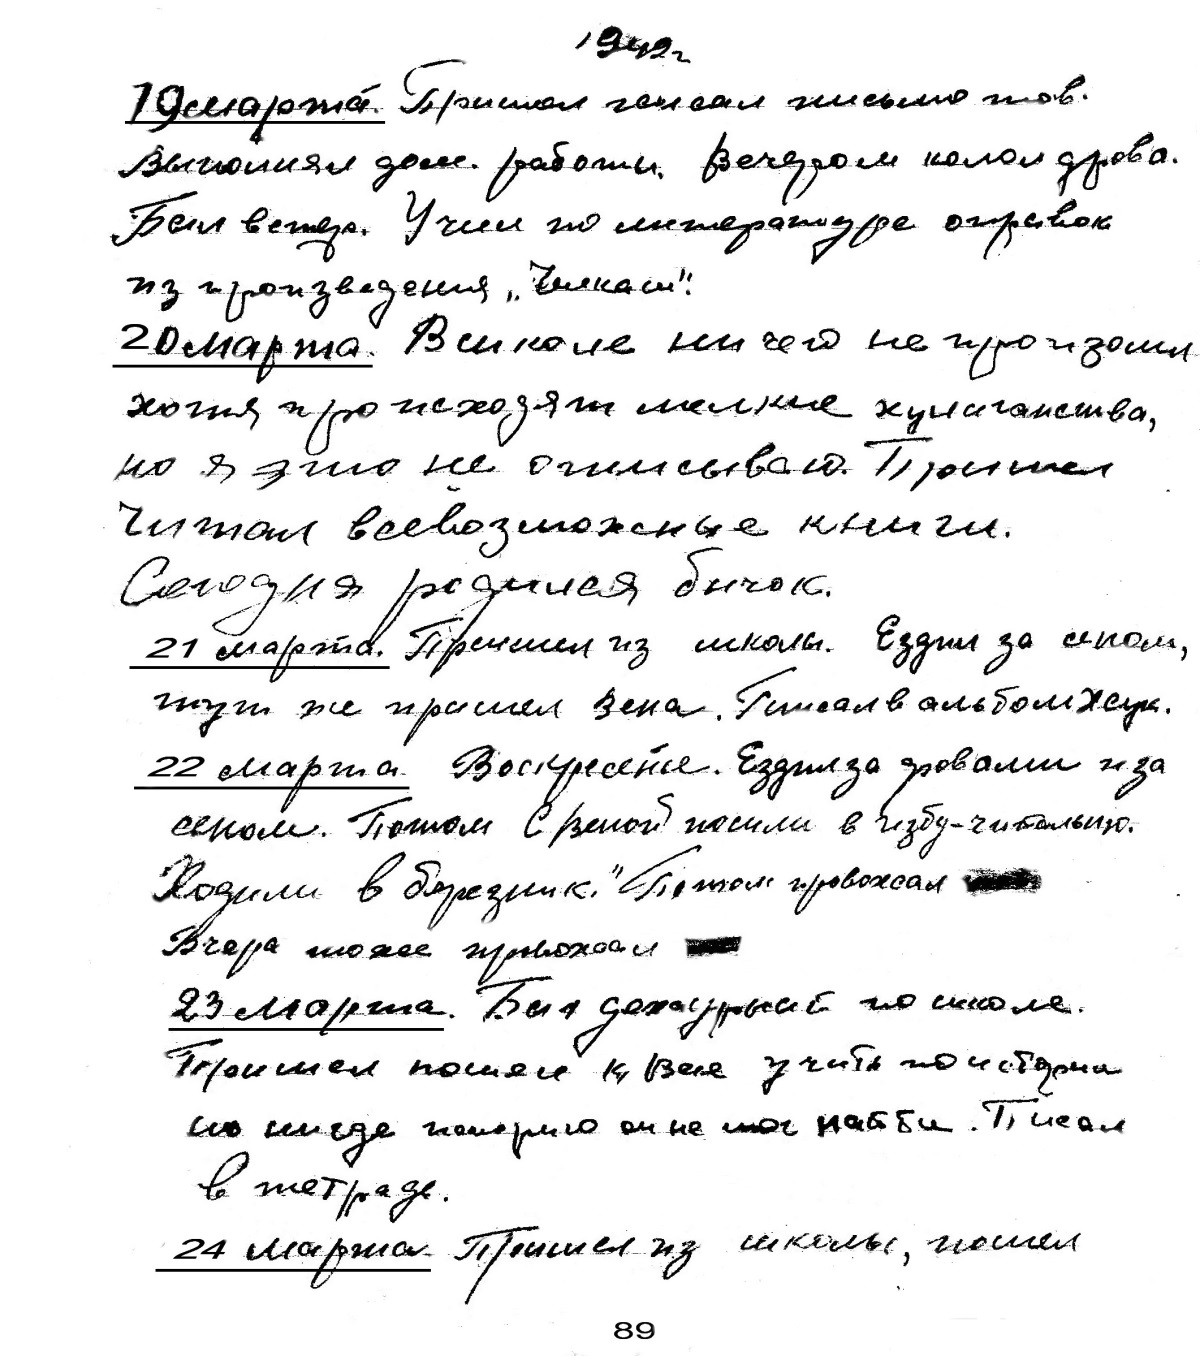 1942г
19 марта. Пришол писал письмо тов.
Выполнял дом. работы. Вечером колол дрова.
Был ветер. Учил по литературе отрывок
из произведения „Челкаш".
20 марта. В школе ничего не произошл
хотя происходят мелкие хулиганства,
но я это не описываю. Пришел
Читал всевозможные книги.
Сегодня родился бычок.
21 марта. Пришел из школы. Ездил за сеном,
тут же пришел Вена. Писал в альбом
22 марта Воскресенье. Ездил за дровами и за
сеном. Потом с Веной пошли в избу-читальню.
Ходили в березник." Потом провожал
Вчера тоже провожал
23 марта. Был дежурный по школе.
Пришел пошел к Вене учить по истории
но нигде он не мог найти. Писал
в тетраде.
24 марта. Пришел из школы, пошел
89